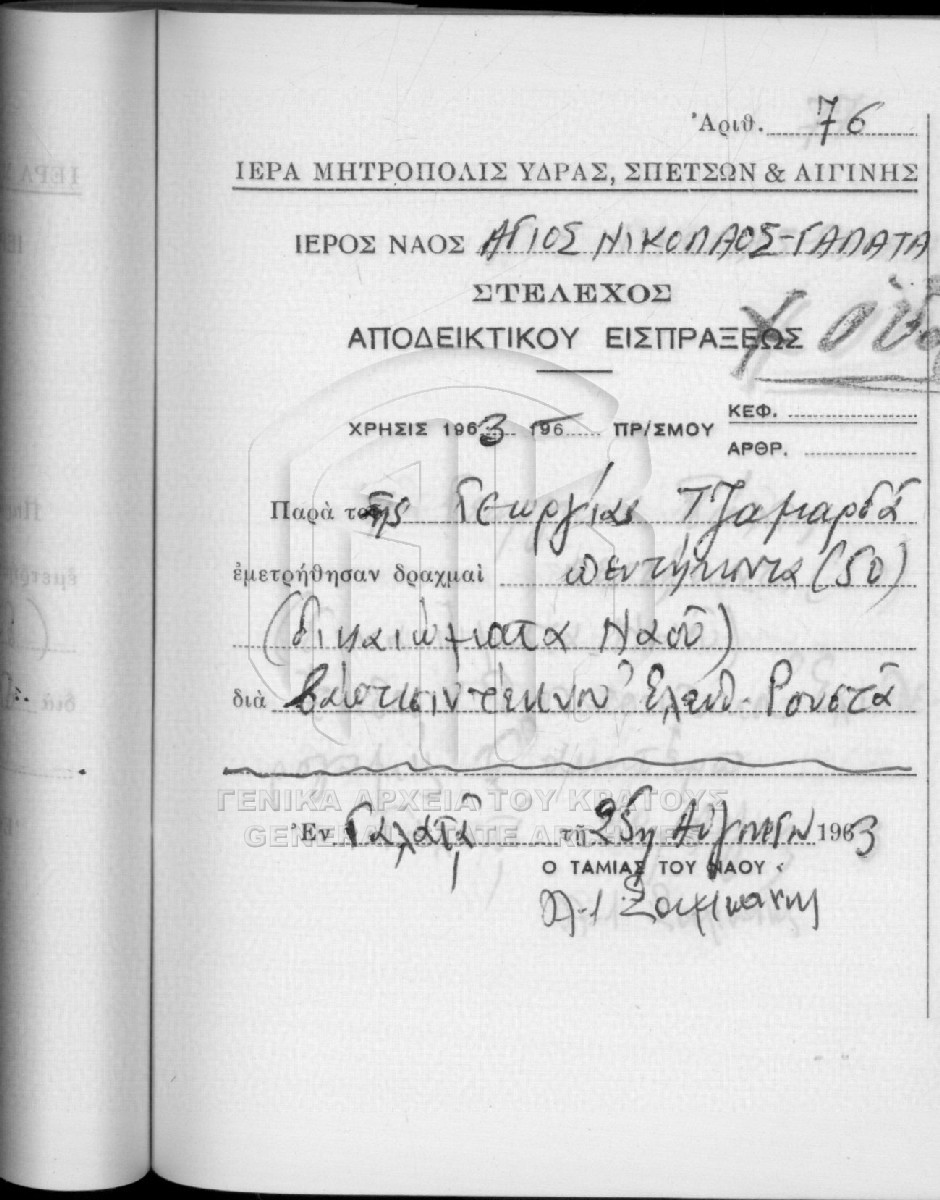 Ἀριθ. 76
ΙΕΡΑ ΜΗΤΡΟΠΟΛΙΣ ΥΔΡΑΣ, ΣΠΕΤΣΩΝ & ΑΙΓΙΝΗΣ
ΙΕΡΟΣ ΝΑΟΣ ΑΓΙΟΣ ΝΙΚΟΛΑΟΣ-ΓΑΛΑΤΑ
ΣΤΕΛΕΧΟΣ
ΑΠΟΔΕΙΚΤΙΚΟΥ ΕΙΣΠΡΑΞΕΩΣ
ΚΕΦ.
ΧΡΗΣΙΣ 1963 196 ΠΡ/ΣΜΟΥ
ΑΡΘΡ.
Παρὰ της Γεωργίας Τζαμαρδᾶ
ἐμετρήθησαν δραχμαὶ πεντήκοντα (50)
(δικαιώματα Ναοῦ)
διὰ βάπτισιν τέκνου Ἐλευθ. Ρουστᾶ
ΓΕΝΙΚΑ ΑΡΧΕΙΑ ΤΟΥ ΚΡΑΤΟΥΣ
GENERAL STATE ARCHIVES
Ἐν Γαλατᾷ τῇ 25η Αὐγούστου 1963
Ο ΤΑΜΙΑΣ ΤΟΥ ΝΑΟΥ